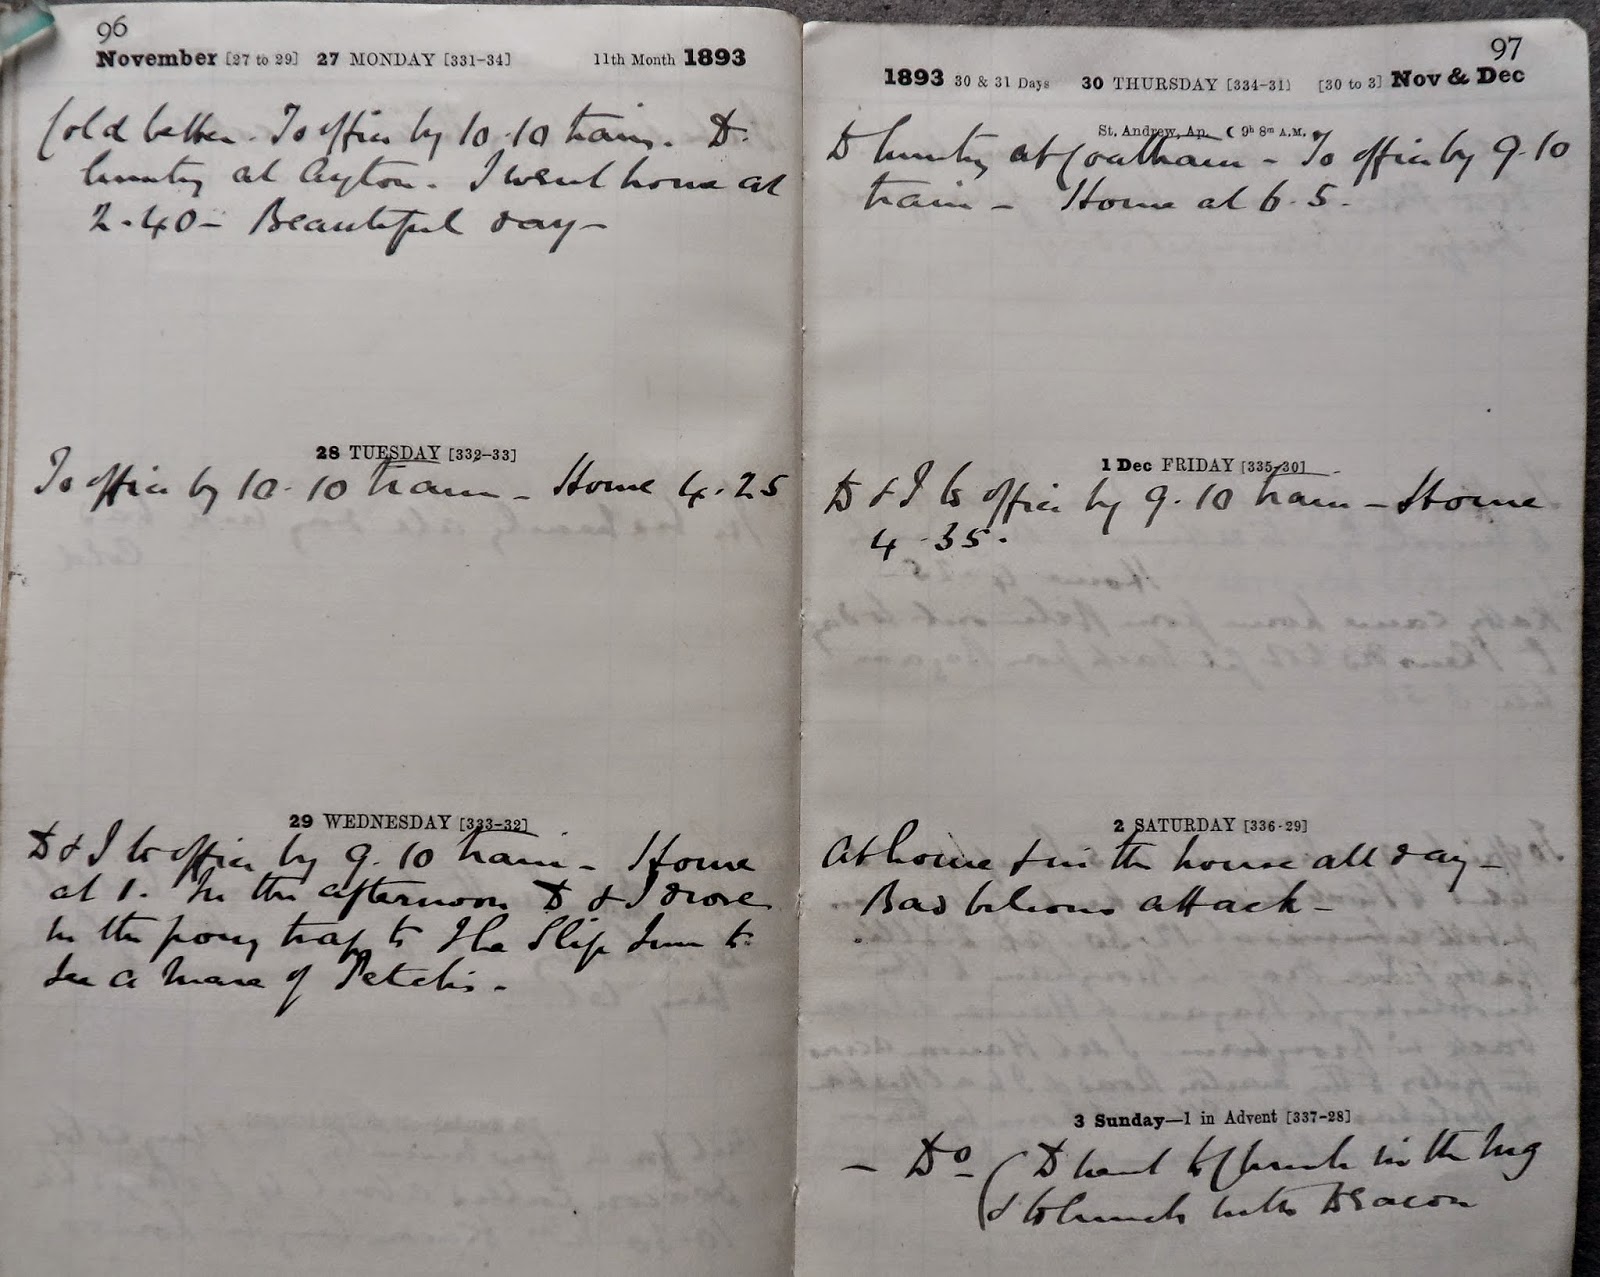 96
November [27 to 29] 27 MONDAY [331-34] 11th Month 1893
Cold better. To office by 10.10 train. D.
hunting at Ayton. I went home at
2.40 - Beautiful day -
28 TUESDAY [332-33]
To office by 10.10 train - Home 4.25
29 WEDNESDAY [333-32]
D & I to office by 9.10 train - Home
at 1. In the afternoon D & I drove
in the pony trap to The Slip Inn to
see a mare of Petch's.
97
1893 30 & 31 Days 30 THURSDAY [334-31] [30 to 3] Nov & Dec
St. Andrew, Ap. ☾ 9h 8m A.M.
D hunting at Coatham - To office by 9.10
train - Home at 6.5.
1 Dec FRIDAY [335-30]
D & I to office by 9.10 train - Home
4.35.
2 SATURDAY [336-29]
At home & in the house all day -
Bad bilious attack -
3 Sunday—1 in Advent [337-28]
- Do (D went to Church in the mg
& to lunch with Deacon